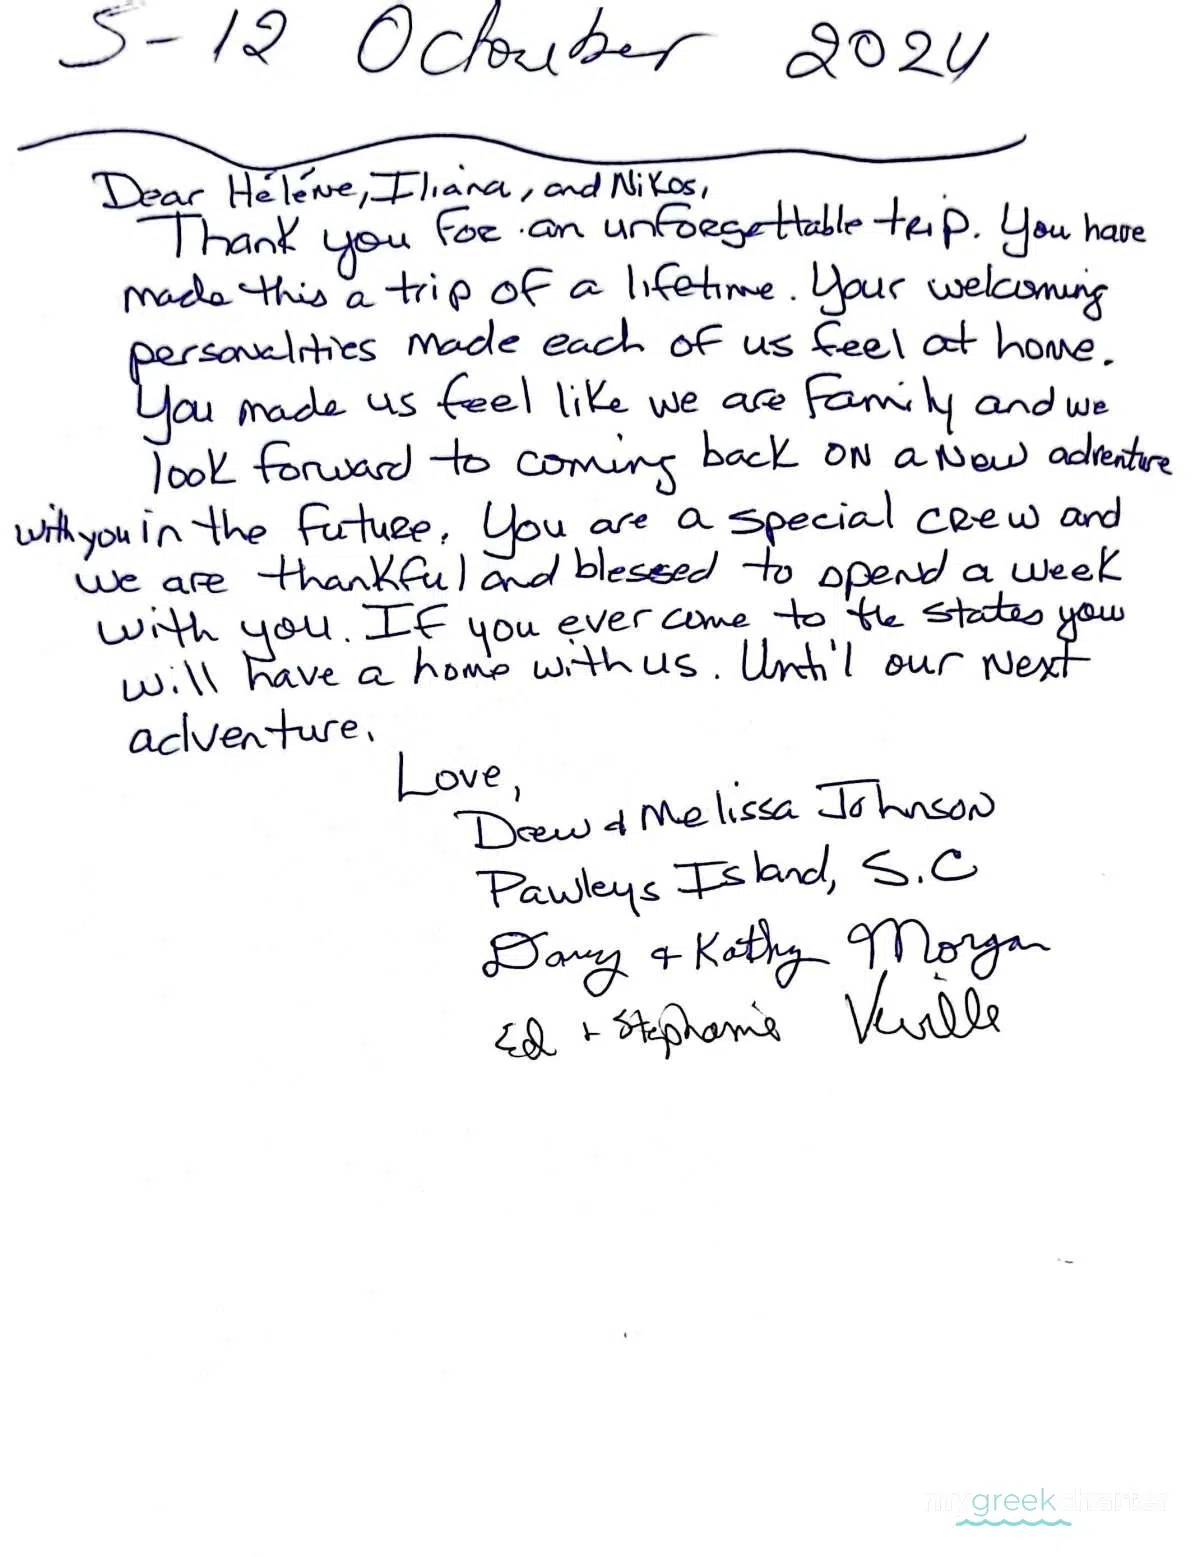 5-12 Octouber 2024
Dear Héléne, Iliana, and Nikos,
Thank you for an unforgettable trip. You have
made this a trip of a lifetime. Your welcoming
personalities made each of us feel at home.
You made us feel like we are family and we
look forward to coming back on a new adventure
with you in the future. You are a special crew and
we are thankful and blessed to spend a week
with you. If you ever come to the states you
will have a home with us. Until our next
adventure.
Love,
Drew & Melissa Johnson
Pawleys Island, S.C
& Kathy Morgan
Ed + Stephanie
mygreekcharter